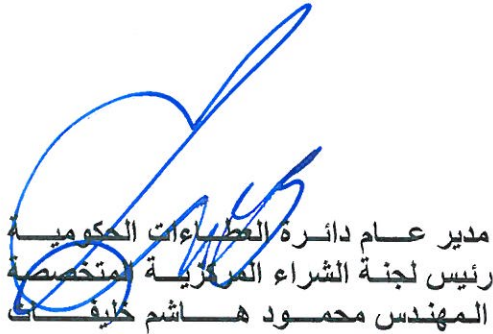 مدير عام دائرة العطاءات الحكومية
رئيس لجنة الشراء المركزية المتخصصة
المهندس محمود هاشم خليفات